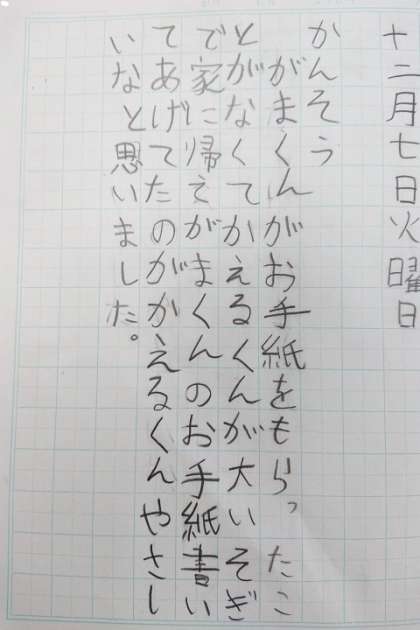 十二月七日火曜日
かんそう
がまくんがお手紙をもらったこ
とがなくてかえるくんが大いそぎ
で家に帰えがまくんのお手紙書い
てあげてたのがかえるくんやさし
いなとと思いました。